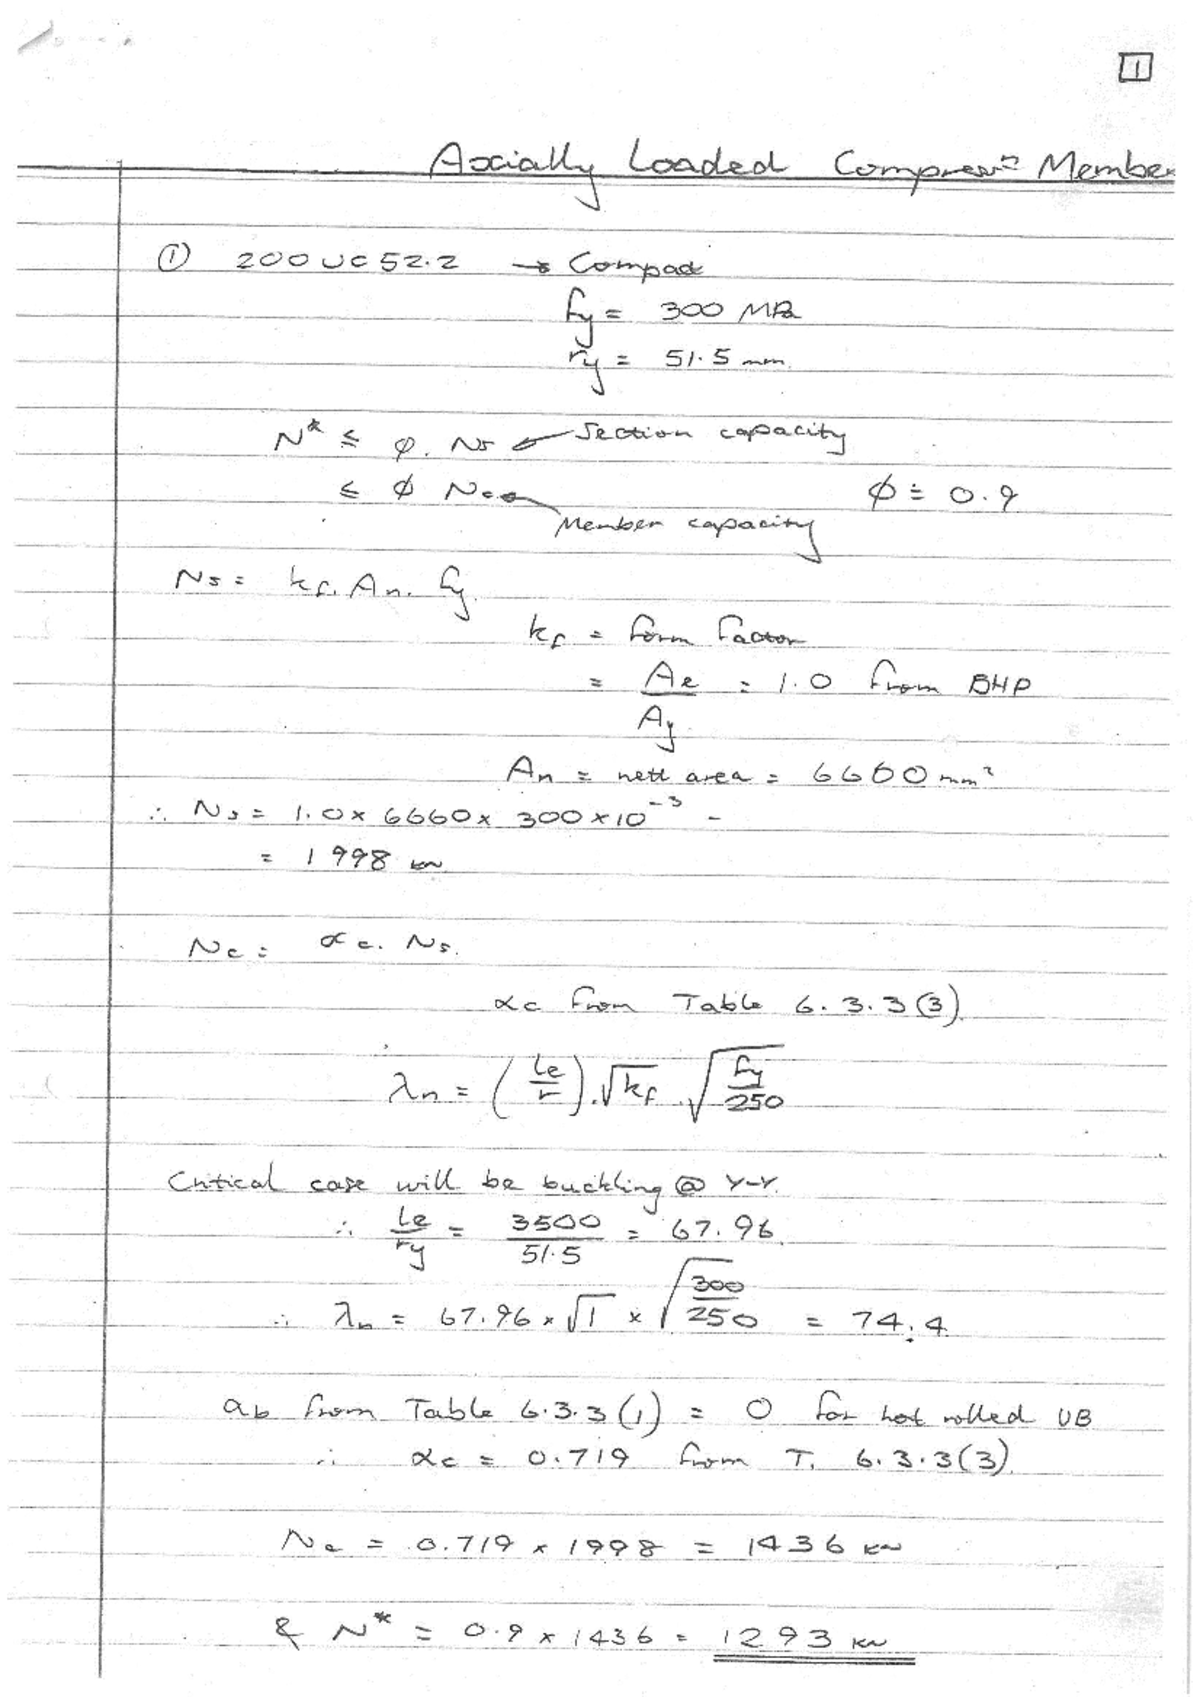 1
Axially Loaded Compress⁼ Member
① 200UC52.2 → Compact
fy = 300 MPa
ry = 51.5 mm
N* ≤ φ. Ns ← Section capacity
≤ φ Nc ← Member capacity φ = 0.9
Ns = kf. An. fy.
kf = form factor
= Ae/Ay = 1.0 from BHP
An = nett area = 6660 mm²
∴ Ns = 1.0 x 6660 x 300 x 10⁻³
= 1998 kN
Nc = αc. Ns.
αc from Table 6.3.3(3)
λn = (le/r).√kf.√(fy/250)
Critical case will be buckling @ Y-Y.
∴ le/ry = 3500/51.5 = 67.96
∴ λn = 67.96 x √1 x √(300/250) = 74.4
αb from Table 6.3.3(1) = 0 for hot rolled UB
∴ αc = 0.719 from T. 6.3.3(3)
Nc = 0.719 x 1998 = 1436 kN
& N* = 0.9 x 1436 = 1293 kN